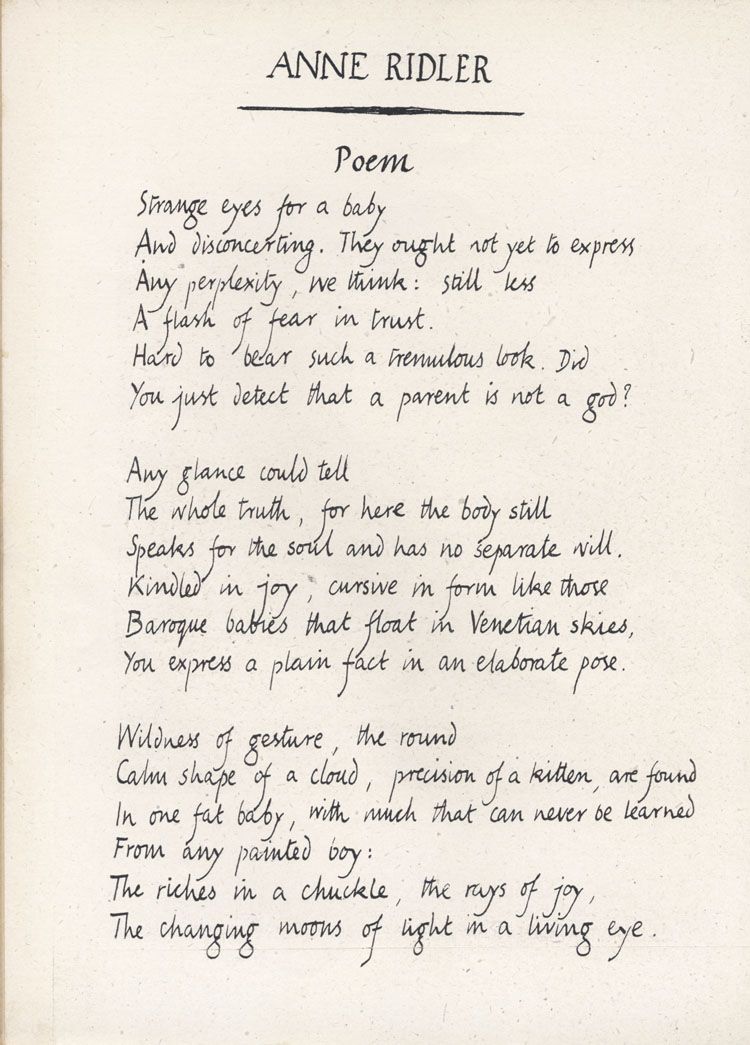 ANNE RIDLER
Poem
Strange eyes for a baby
And disconcerting. They ought not yet to express
Any perplexity, we think: still less
A flash of fear in trust.
Hard to bear such a tremulous look. Did
You just detect that a parent is not a god?
Any glance could tell
The whole truth, for here the body still
Speaks for the soul and has no separate will.
Kindled in joy, cursive in form like those
Baroque babies that float in Venetian skies,
You express a plain fact in an elaborate pose.
Wildness of gesture, the round
Calm shape of a cloud, precision of a kitten, are found
In one fat baby, with much that can never be learned
From any painted boy:
The riches in a chuckle, the rays of joy,
The changing moons of light in a living eye.